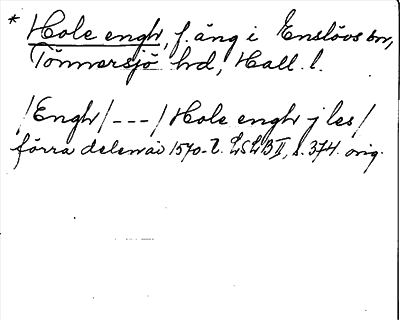 * Hole engh, f. äng i Enslövs sn,
Tönnersjö hd, Hall. l.
/Engh/---/Hole engh j les/
förra delen av 1570-t. LSLB II, s. 374. orig.